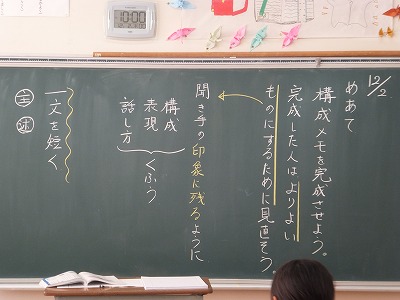 12/2
めあて
構成メモを完成させよう。
完成した人はよりよい
ものにするために見直そう。
聞き手の印象に残るように
構成
表現
話し方
くふう
一文を短く
主 述